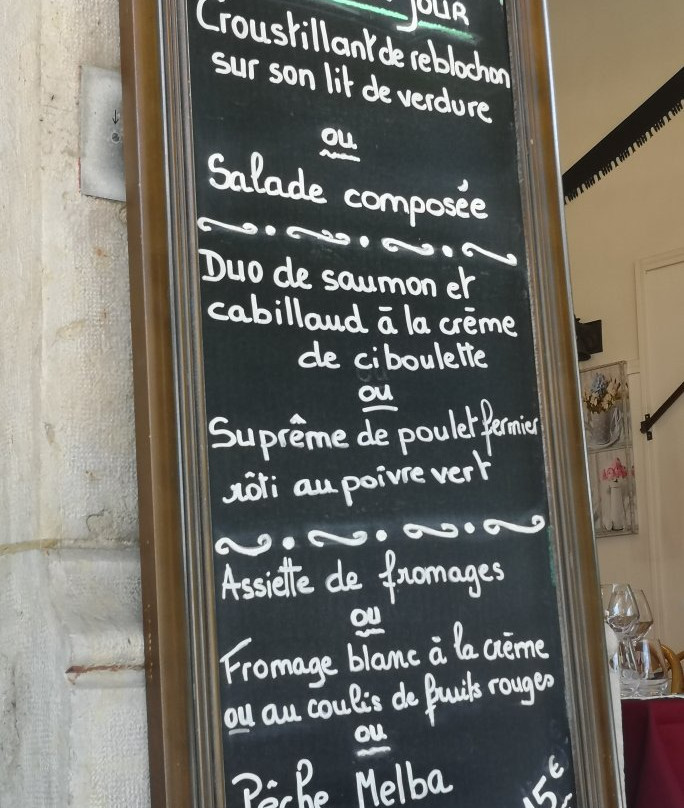 JOUR
Croustillant de reblochon
sur son lit de verdure
ou
Salade composée
Duo de saumon et
cabillaud à la crème
de ciboulette
ou
Suprême de poulet fermier
rôti au poivre vert
Assiette de fromages
ou
Fromage blanc à la crème
ou au coulis de fruits rouges
ou
Pêche Melba